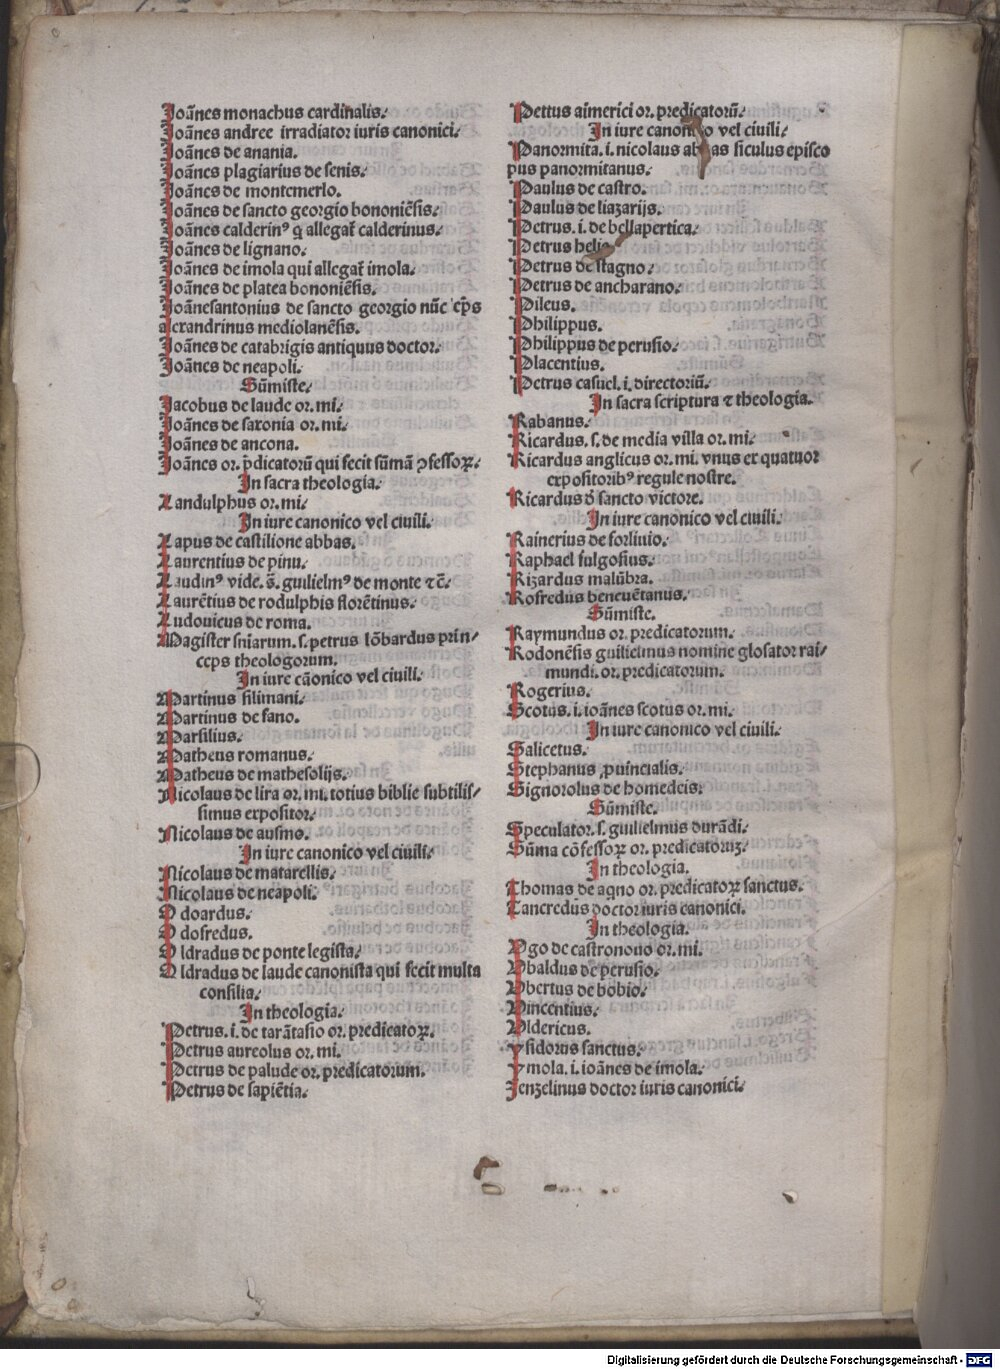 Joãnes monachus cardinalis.
Joãnes andree irradiator iuris canonici.
Joãnes de anania.
Joãnes plagiarius de senis.
Joãnes de montemerlo.
Joãnes de sancto georgio bononiẽsis.
Joãnes calderinꝰ q̃ allegat̃ calderinus.
Joãnes de lignano.
Joãnes de imola qui allegat̃ imola.
Joãnes de platea bononiẽsis.
Joãnesantonius de sancto georgio nũc ep̃s
alexandrinus mediolanẽsis.
Joãnes de catabrigis antiquus doctor.
Joãnes de neapoli.
Sũmiste.
Jacobus de laude or. mi.
Joãnes de saxonia or. mi.
Joãnes de ancona.
Joãnes or. p̃dicatorũ qui fecit sũmã ꝯfessoꝝ.
In sacra theologia.
Landulphus or. mi.
In iure canonico vel ciuili.
Lapus de castilione abbas.
Laurentius de pinu.
Laudinꝰ vide. s̃. guilielmꝰ de monte ⁊c̃.
Laurẽtius de rodulphis florẽtinus.
Ludouicus de roma.
Magister sniarum. s. petrus lõbardus prin/
ceps theologorum.
In iure cãonico vel ciuili.
Martinus silimani.
Martinus de fano.
Marsilius.
Matheus romanus.
Matheus de mathesolijs.
Nicolaus de lira or. mi. totius biblie subtilis/
simus expositor.
Nicolaus de ausmo.
In iure canonico vel ciuili.
Nicolaus de matarellis.
Nicolaus de neapoli.
Odoardus.
Odofredus.
Oldradus de ponte legista.
Oldradus de laude canonista qui fecit multa
consilia.
In theologia.
Petrus. i. de tarãtasio or. predicatoꝝ.
Petrus aureolus or. mi.
Petrus de palude or. predicatorum.
Petrus de sapiẽtia.
Pettus aimerici or. predicatorũ.
In iure canonico vel ciuili.
Panormita. i. nicolaus abbas siculus episco
pus panormitanus.
Paulus de castro.
Paulus de liazarijs.
Petrus. i. de bellapertica.
Petrus helie
Petrus de stagno.
Petrus de ancharano.
Pileus.
Philippus.
Philippus de perusio.
Placentius.
Petrus casuel. i. directoriũ.
In sacra scriptura ⁊ theologia.
Rabanus.
Ricardus. s. de media villa or. mi.
Ricardus anglicus or. mi. vnus ex quatuor
expositoribꝰ regule nostre.
Ricardus d̃ sancto victore.
In iure canonico vel ciuili.
Rainerius de forliuio.
Raphael fulgosius.
Rizardus malũbra.
Rofredus beneuẽtanus.
Sũmiste.
Raymundus or. predicatorum.
Rodonẽsis guilielmus nomine glosator rai/
mundi. or. predicatorum.
Rogerius.
Scotus. i. ioãnes scotus or. mi.
In iure canonico vel ciuili.
Salicetus.
Stephanus ꝓuincialis.
Signorolus de homedeis.
Sũmiste.
Speculator. s. guilielmus durãdi.
Sũma cõfessoꝝ or. predicatoruʒ.
In theologia.
Thomas de aqno or. predicatoꝝ sanctus.
Tancredus doctor iuris canonici.
In theologia.
Vgo de castronouo or. mi.
Vbaldus de perusio.
Vbertus de bobio.
Vincentius.
Vldericus.
Ysidorus sanctus.
Ymola. i. ioãnes de imola.
Jenzelinus doctor iuris canonici.
Digitalisierung gefördert durch die Deutsche Forschungsgemeinschaft - DFG